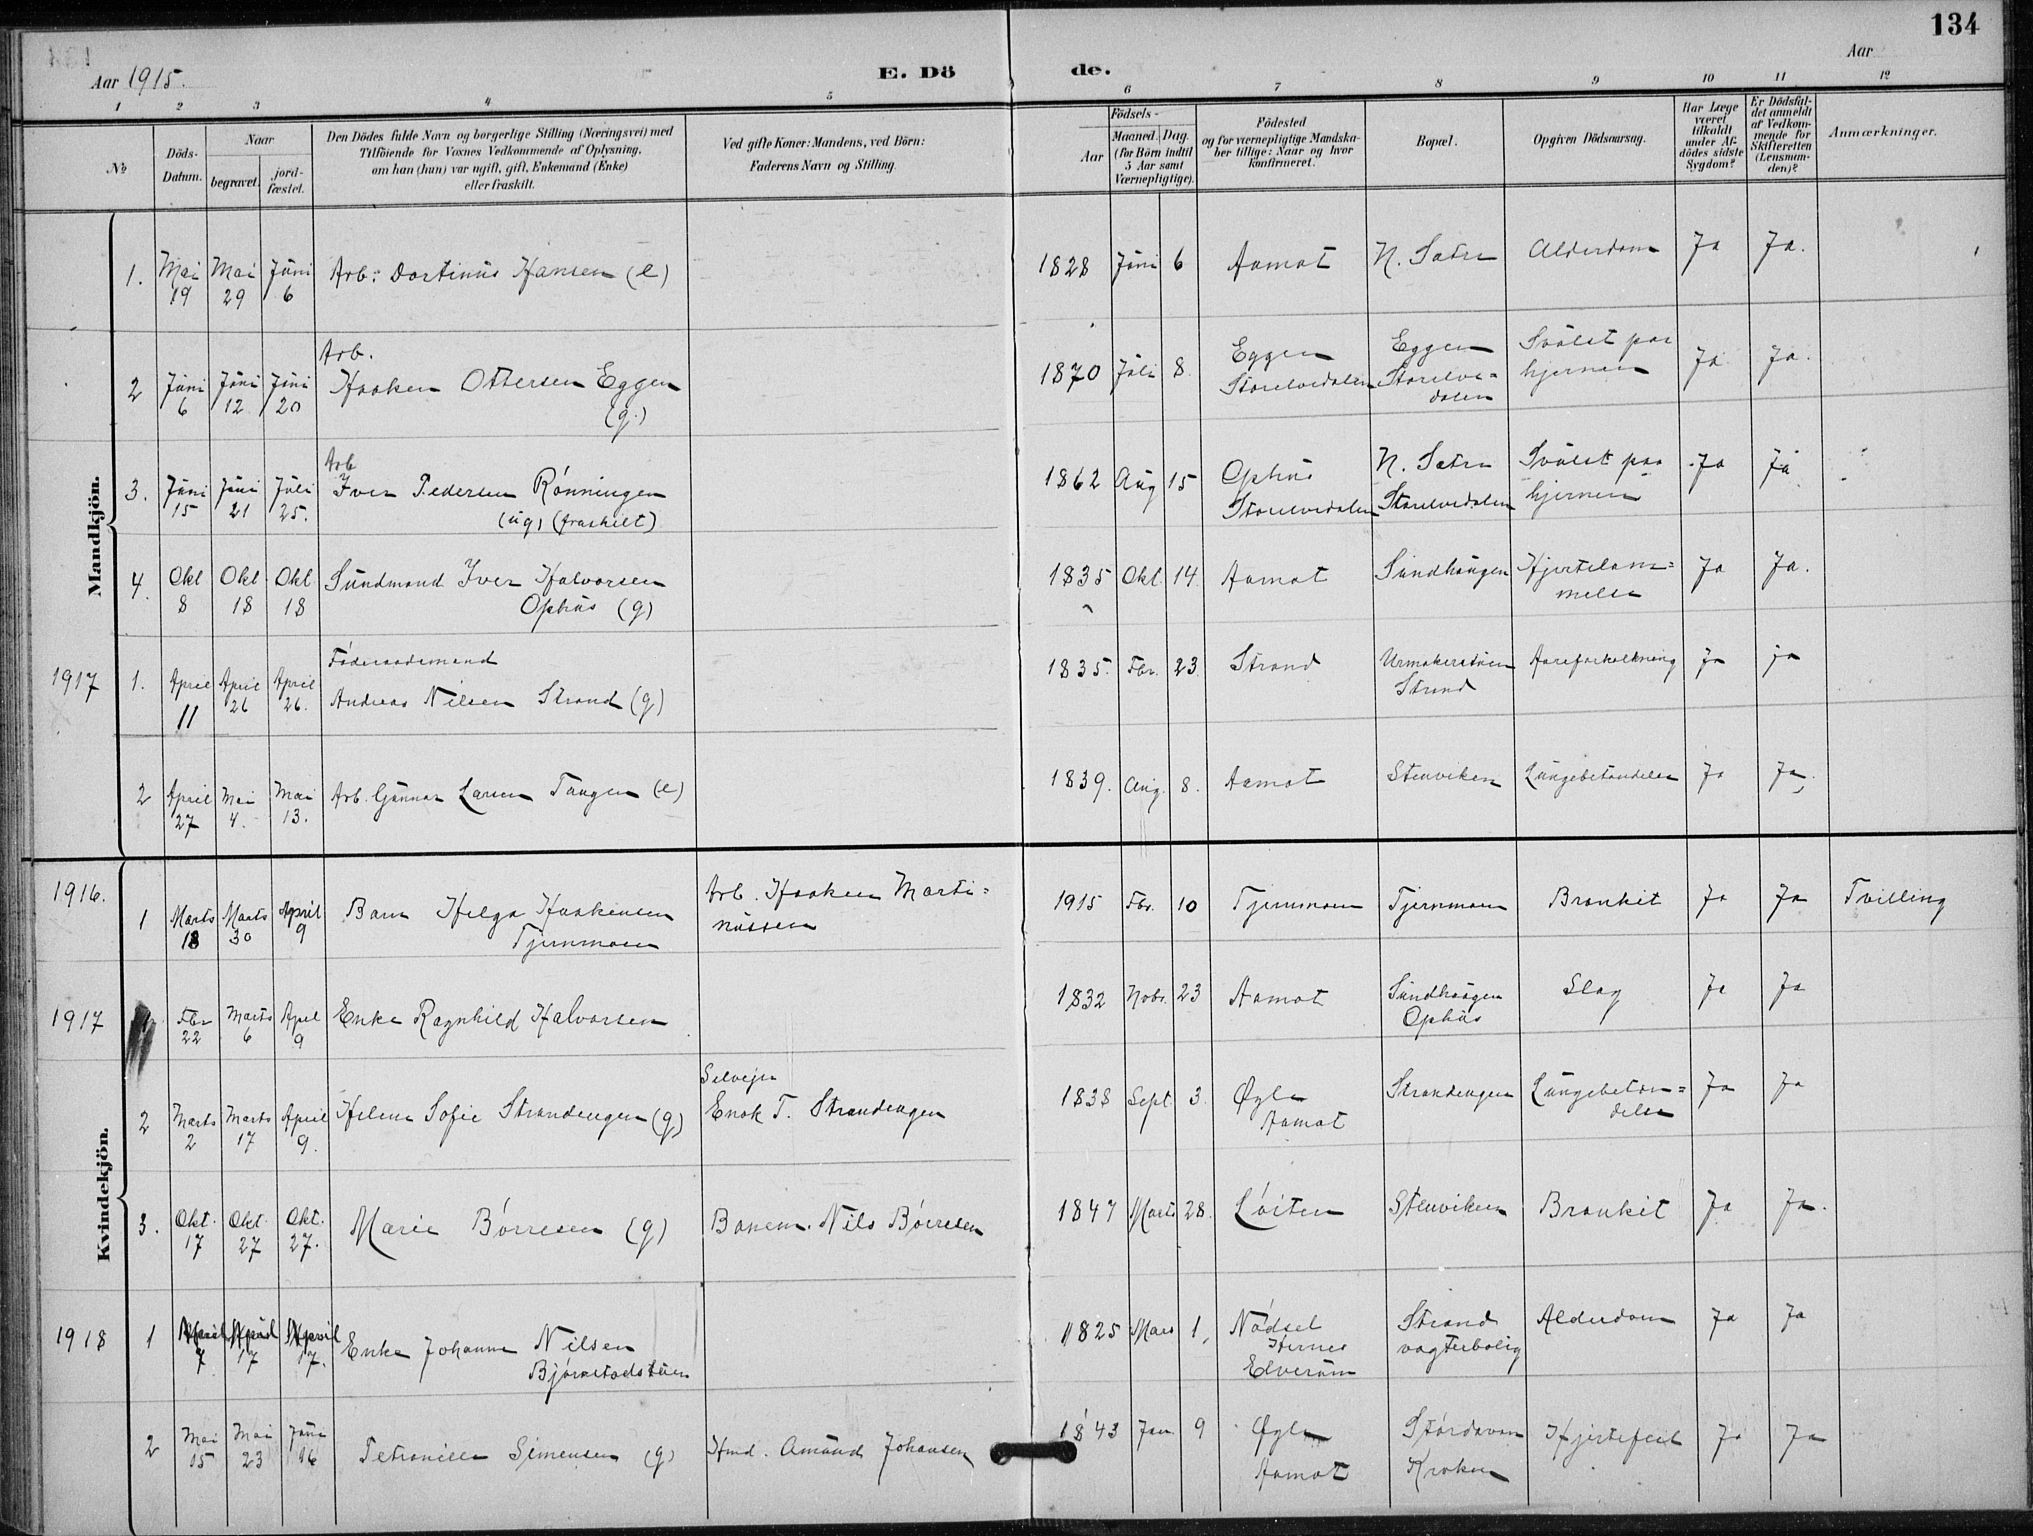 134
Aar 1915.
E. Dö de.
Aar
1 2 3 4 5 6 7 8 9 10 11 12
№
Döds-
Datum.
Naar
begravet.
jord-
fæstet.
Den Dödes fulde Navn og borgerlige Stilling (Næringsvei) med
Tilföiende for Voxnes Vedkommende af Oplysning,
om han (hun) var ugift, gift, Enkemand (Enke)
eller fraskilt.
Ved gifte Koner: Mandens, ved Börn:
Faderens Navn og Stilling.
Födsels-
Aar
Maaned.
Dag.
(for Börn indtil
5 Aar samt
Værnepligtige).
Födested
og for værnepligtige Mandska-
ber tillige: Naar og hvor
konfirmeret.
Bopæl.
Opgiven Dödsaarsag.
Har Læge
været
tilkaldt
under Af-
dödes sidste
Sygdom?
Er Dödsfal-
det anmeldt
af Vedkom-
mende for
Skifteretten
(Lensman-
den)?
Anmærkninger.
Mandkjön.
1. Mai 19 Mai 29 Júni 6 Arb: Dortinús Hansen (e) 1828 Júni 6 Aamot N. Sætre Alderdom Ja Ja.
2 Júni 6 Júni 12 Júni 20 Arb.
Haaken Ottersen Eggen
(g.) 1870 Júli 8. Eggen
Storelvedalen Eggen
Storelve-
dalen Svúlst paa
hjernen Ja Ja.
3. Júni 15 Júni 21 Júli 25. Arb
Iver Pedersen Rønningen
(úg) (fraskilt) 1862 Aúg 15 Ophús
Storelvedalen N. Sætre
Storelvedalen Svúlst paa
hjernen Ja Ja
4. Okt 8 Okt 18 Okt 18 Súndmand Iver Halvorsen
Ophús (g) 1835 Okt. 14. Aamot Súndhaúgen Hjertelam=
melse Ja Ja.
1917 1. April 11 April 26 April 26. Føderaadsmand
Andreas Nilsen Strand (g) 1835. Fbr. 23 Strand Urmakerstúen
Strand Aareforkalkning Ja ja
2 April 27 Mai 4. Mai 13. Arb. Gúnnar Larsen Tangen (e) 1839. Aúg. 8. Aamot Stenviken Lúngebetændelse Ja Ja,
Kvindekjön.
1916. 1 Marts 18 Marts 30 April 9 Barn Helga Haakensen
Tjernmoen Arb. Haaken Marti=
nússen 1915 Fbr. 10 Tjernmoen Tjernmoen Bronkit Ja Ja Tvilling
1917 Fbr 22 Marts 6 April 9 Enke Ragnhild Halvorsen 1832 Nobr. 23 Aamot Súndhaúgen
Ophús Slag Ja Ja
2 Marts 2 Marts 17 April 9. Helene Sofie Strandengen (g) Selvejer
Enok T. Strandengen 1838 Sept. 3. Øgle
Aamot Strandengen Lúngebetæn=
delse Ja Ja
3. Okt. 17 Okt. 27 Okt. 27. Marie Børresen (g) Banem. Nils Børresen 1847 Marts 28. Løiten Stenviken Bronkit Ja Ja.
1918 1 April 7 April 17 April 17. Enke Johanne Nilsen
Bjørnstadstúen 1825 Mars 1, Nødset
Hernes
Elverúm Strand
vogterbolig Alderdom Ja Ja
2 Mai 15 Mai 23 Júni 16 Petronille Simensen (g) Hmd. Amúnd Johansen 1843 Jan. 9 Øgle
Aamot Kroken Hjertefeil Ja Ja